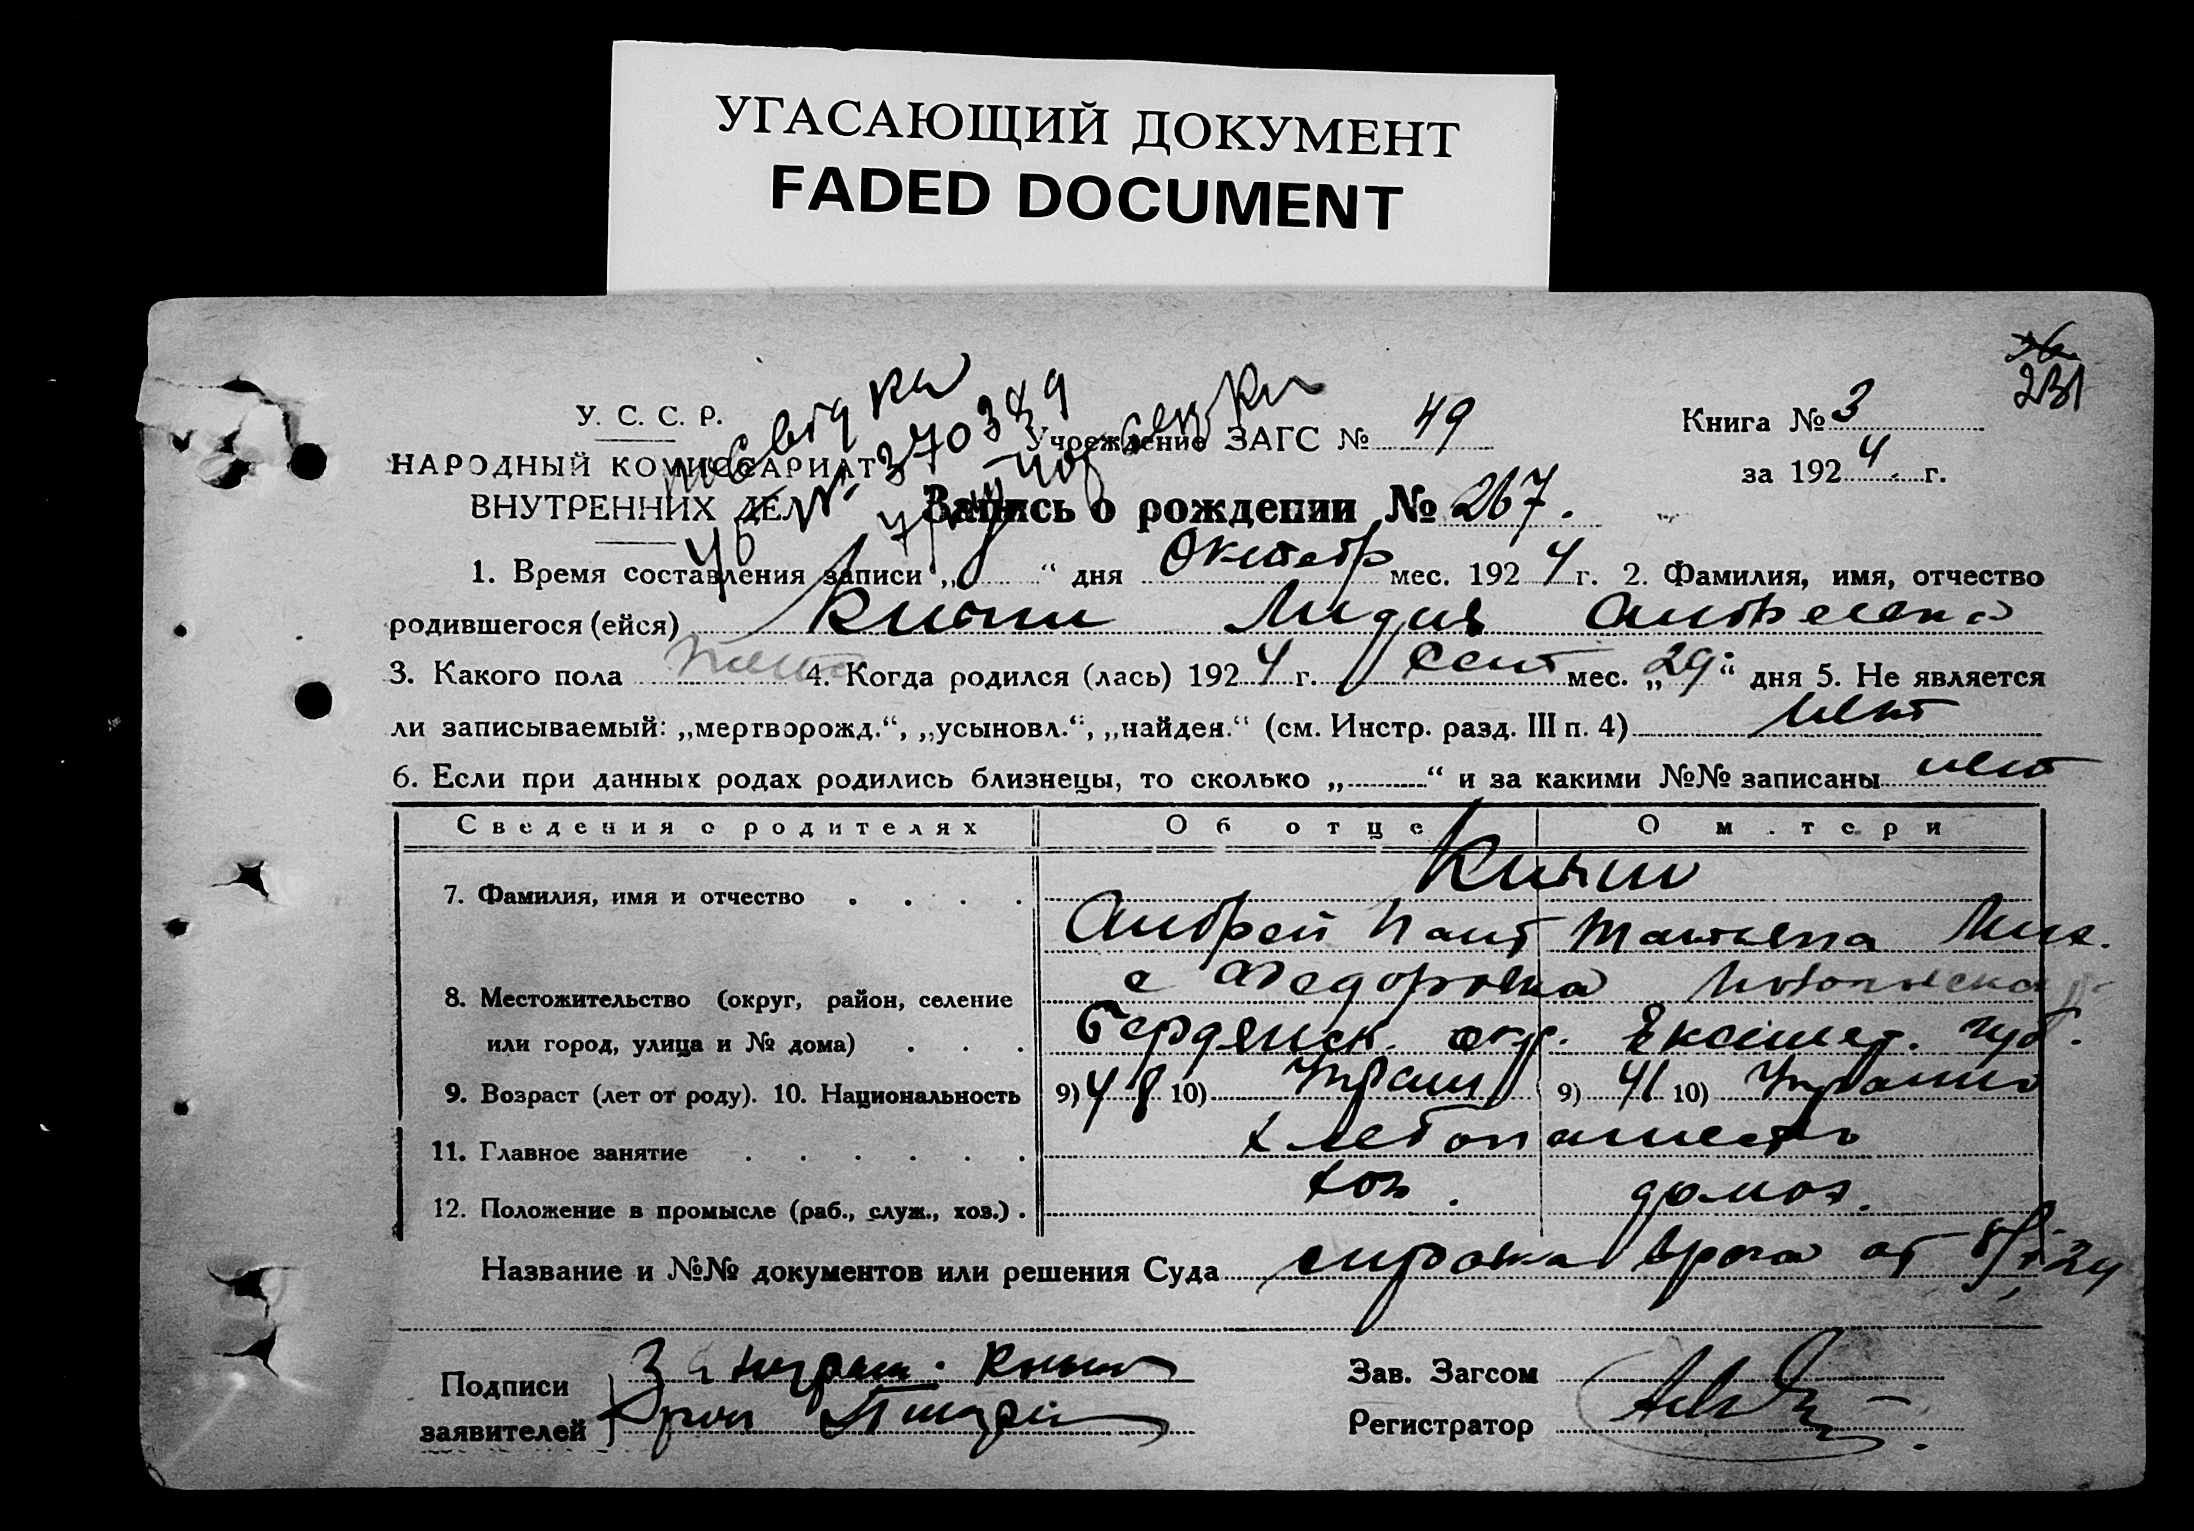 УГАСАЮЩИЙ ДОКУМЕНТ
FADED DOCUMENT
231
У. С. С. Р.
НАРОДНЫЙ КОМИССАРИАТ
ВНУТРЕННИХ ДЕЛ
№ 370389
Учреждение ЗАГС № 49
Книга № 3
за 1924 г.
Запись о рождении № 267.
1. Время составления записи „ “ дня Октябр мес. 1924 г. 2. Фамилия, имя, отчество
родившегося (ейся) Лидия Андреевна
3. Какого пола 4. Когда родился (лась) 1924 г. Сент мес. „29“ дня 5. Не является
ли записываемый: „мертворожд.“, „усыновл.“, „найден.“ (см. Инстр. разд. III п. 4) нет
6. Если при данных родах родились близнецы, то сколько „ “ и за какими №№ записаны нет
Сведения о родителях Об отце О матери
7. Фамилия, имя и отчество
Андрей Пант Татьяна Мих.
8. Местожительство (округ, район, селение с Федоровка
или город, улица и № дома) Бердянск. окр. Екатер. губ.
9. Возраст (лет от роду). 10. Национальность 9) 48 10) Украин 9) 41 10) Украин
11. Главное занятие хлебопашеств
12. Положение в промысле (раб., служ., хоз.) хоз. домох.
Название и №№ документов или решения Суда справка врача от 24
Подписи
заявителей
Зав. Загсом
Регистратор